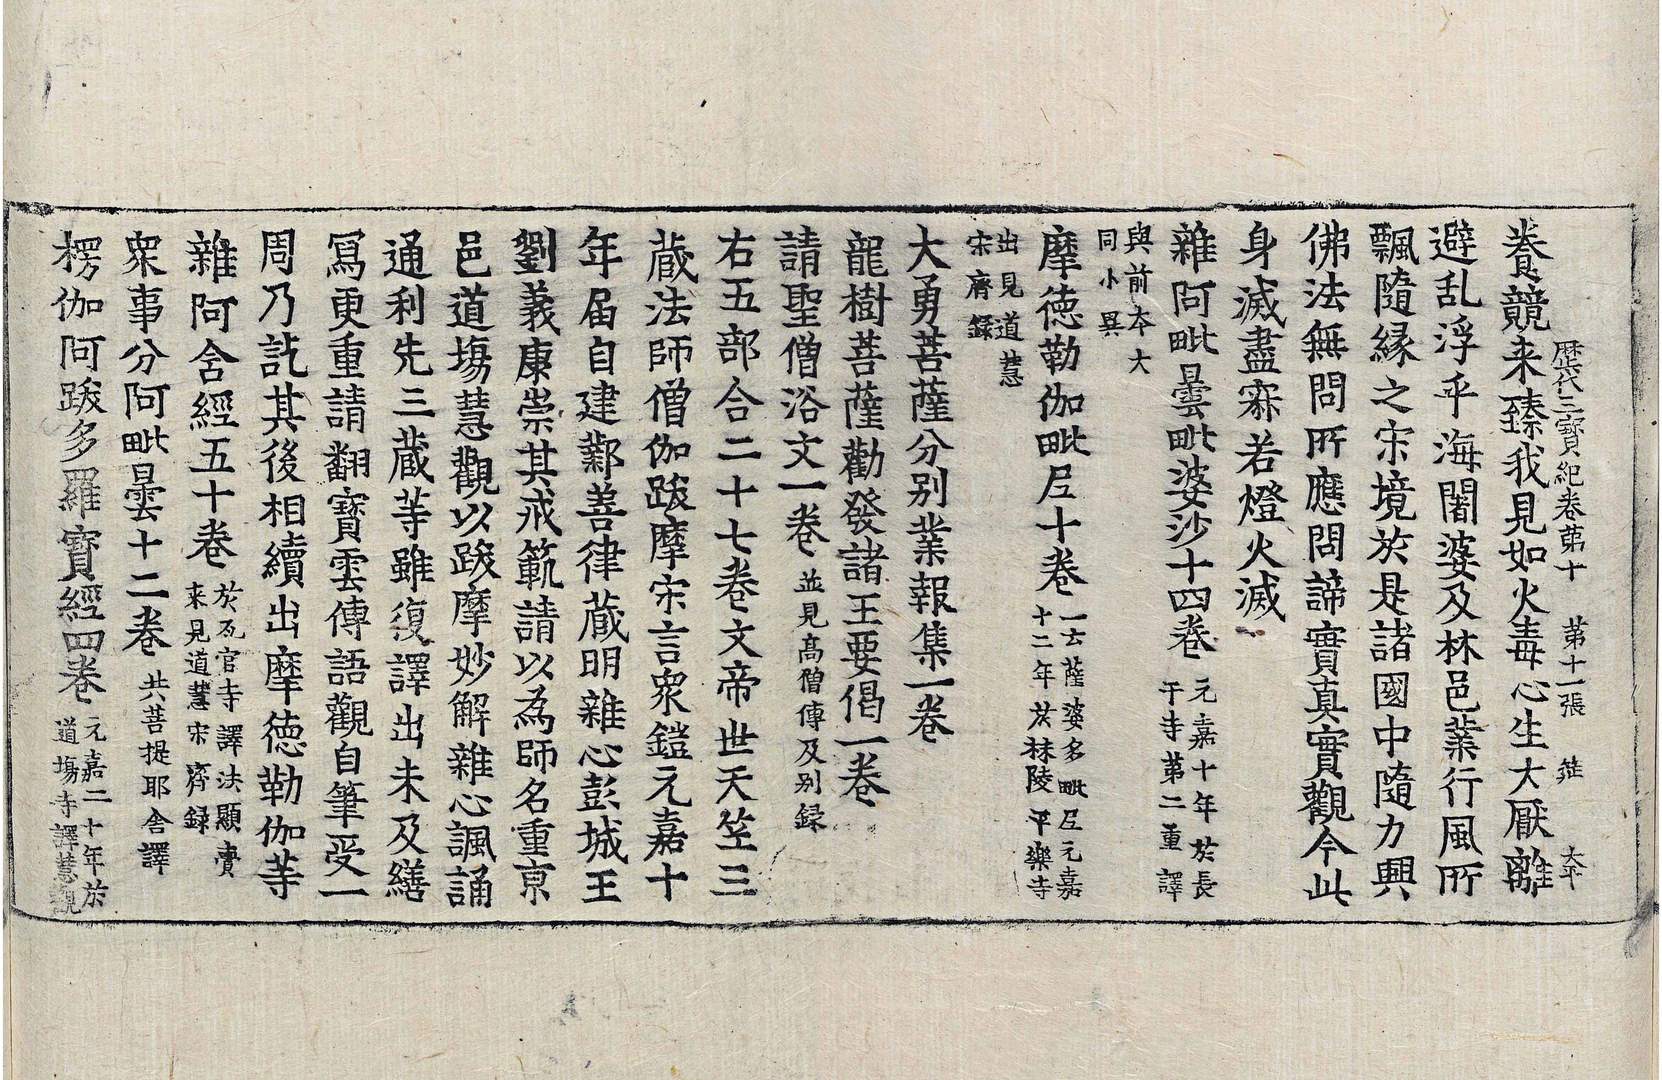 歷代三寶紀卷苐十 苐十一張 筵
養競来臻我見如火毒心生大厭離
避乱浮乎海闍婆及林邑業行風所
飄隨縁之宋境於是諸國中隨力興
佛法無問所應問諦實真實觀今此
身滅盡寂若燈火滅
雜阿毗曇毗婆沙十四卷 元嘉十年於長
干寺第二重譯
與前夲大
同小異
摩德勒伽毗尼十卷 一云薩婆多毗尼元嘉
十二年於秣陵平樂寺
出見道慧
宋齊録
大勇菩薩分别業報集一卷
龍樹菩薩勸發諸王要偈一卷
請聖僧浴文一卷 並見髙僧傳及别録
右五部合二十七卷文帝世天竺三
蔵法師僧伽跋摩宋言衆鎧元嘉十
年届自建鄴善律蔵明雜心彭城王
劉義康崇其戒範請以為師名重亰
邑道場慧觀以跋摩妙解雜心諷誦
通利先三蔵等雖復譯出未及繕
冩更重請翻寶雲傳語觀自筆受一
周乃訖其後相續出摩徳勒伽等
雜阿含經五十卷 於瓦官寺譯法顯賷
来見道慧宋齊録
衆事分阿毗曇十二卷 共菩提耶舍譯
楞伽阿跋多羅寳經四卷 元嘉二十年於
道場寺譯慧觀